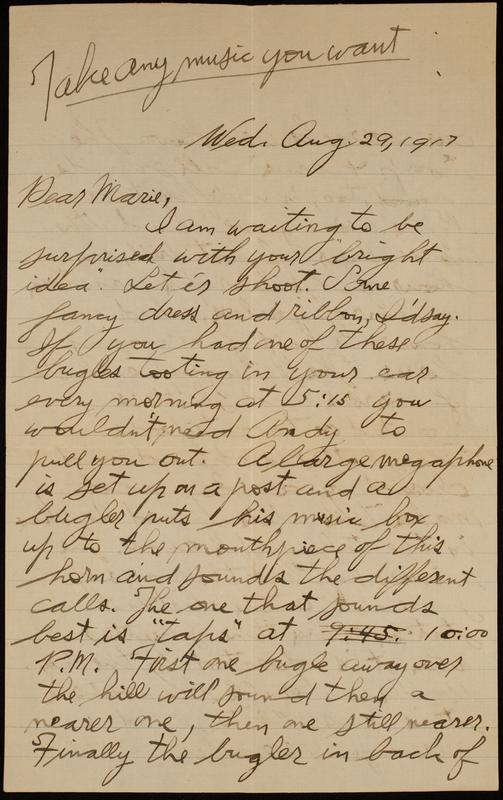 Take any music you want
Wed. Aug 29, 1917
Dear Marie,
I am waiting to be
surprised with your "bright
idea". Let 'er shoot. Some
fancy dress and ribbon, I'd say.
If you had one of these
bugles tooting in your ear
every morning at 5:15 you
wouldn't need Andy to
pull you out. A large megaphone
is set up on a post and a
bugler puts his music box
up to the mouthpiece of this
horn and sounds the different
calls. The one that sounds
best is "taps" at 9:45. 10:00
P.M. First one bugle away over
the hill will sound then a
nearer one, then one still nearer.
Finally the bugler in back of